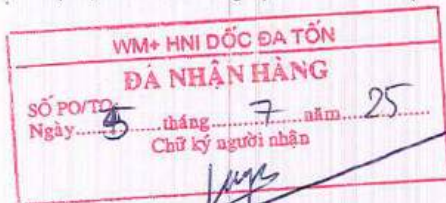 WM+ HNI DỐC ĐA TỐN
ĐÃ NHẬN HÀNG
SỐ PO/TO
Ngày.....5.....tháng.....7.....năm.....25
Chữ ký người nhận